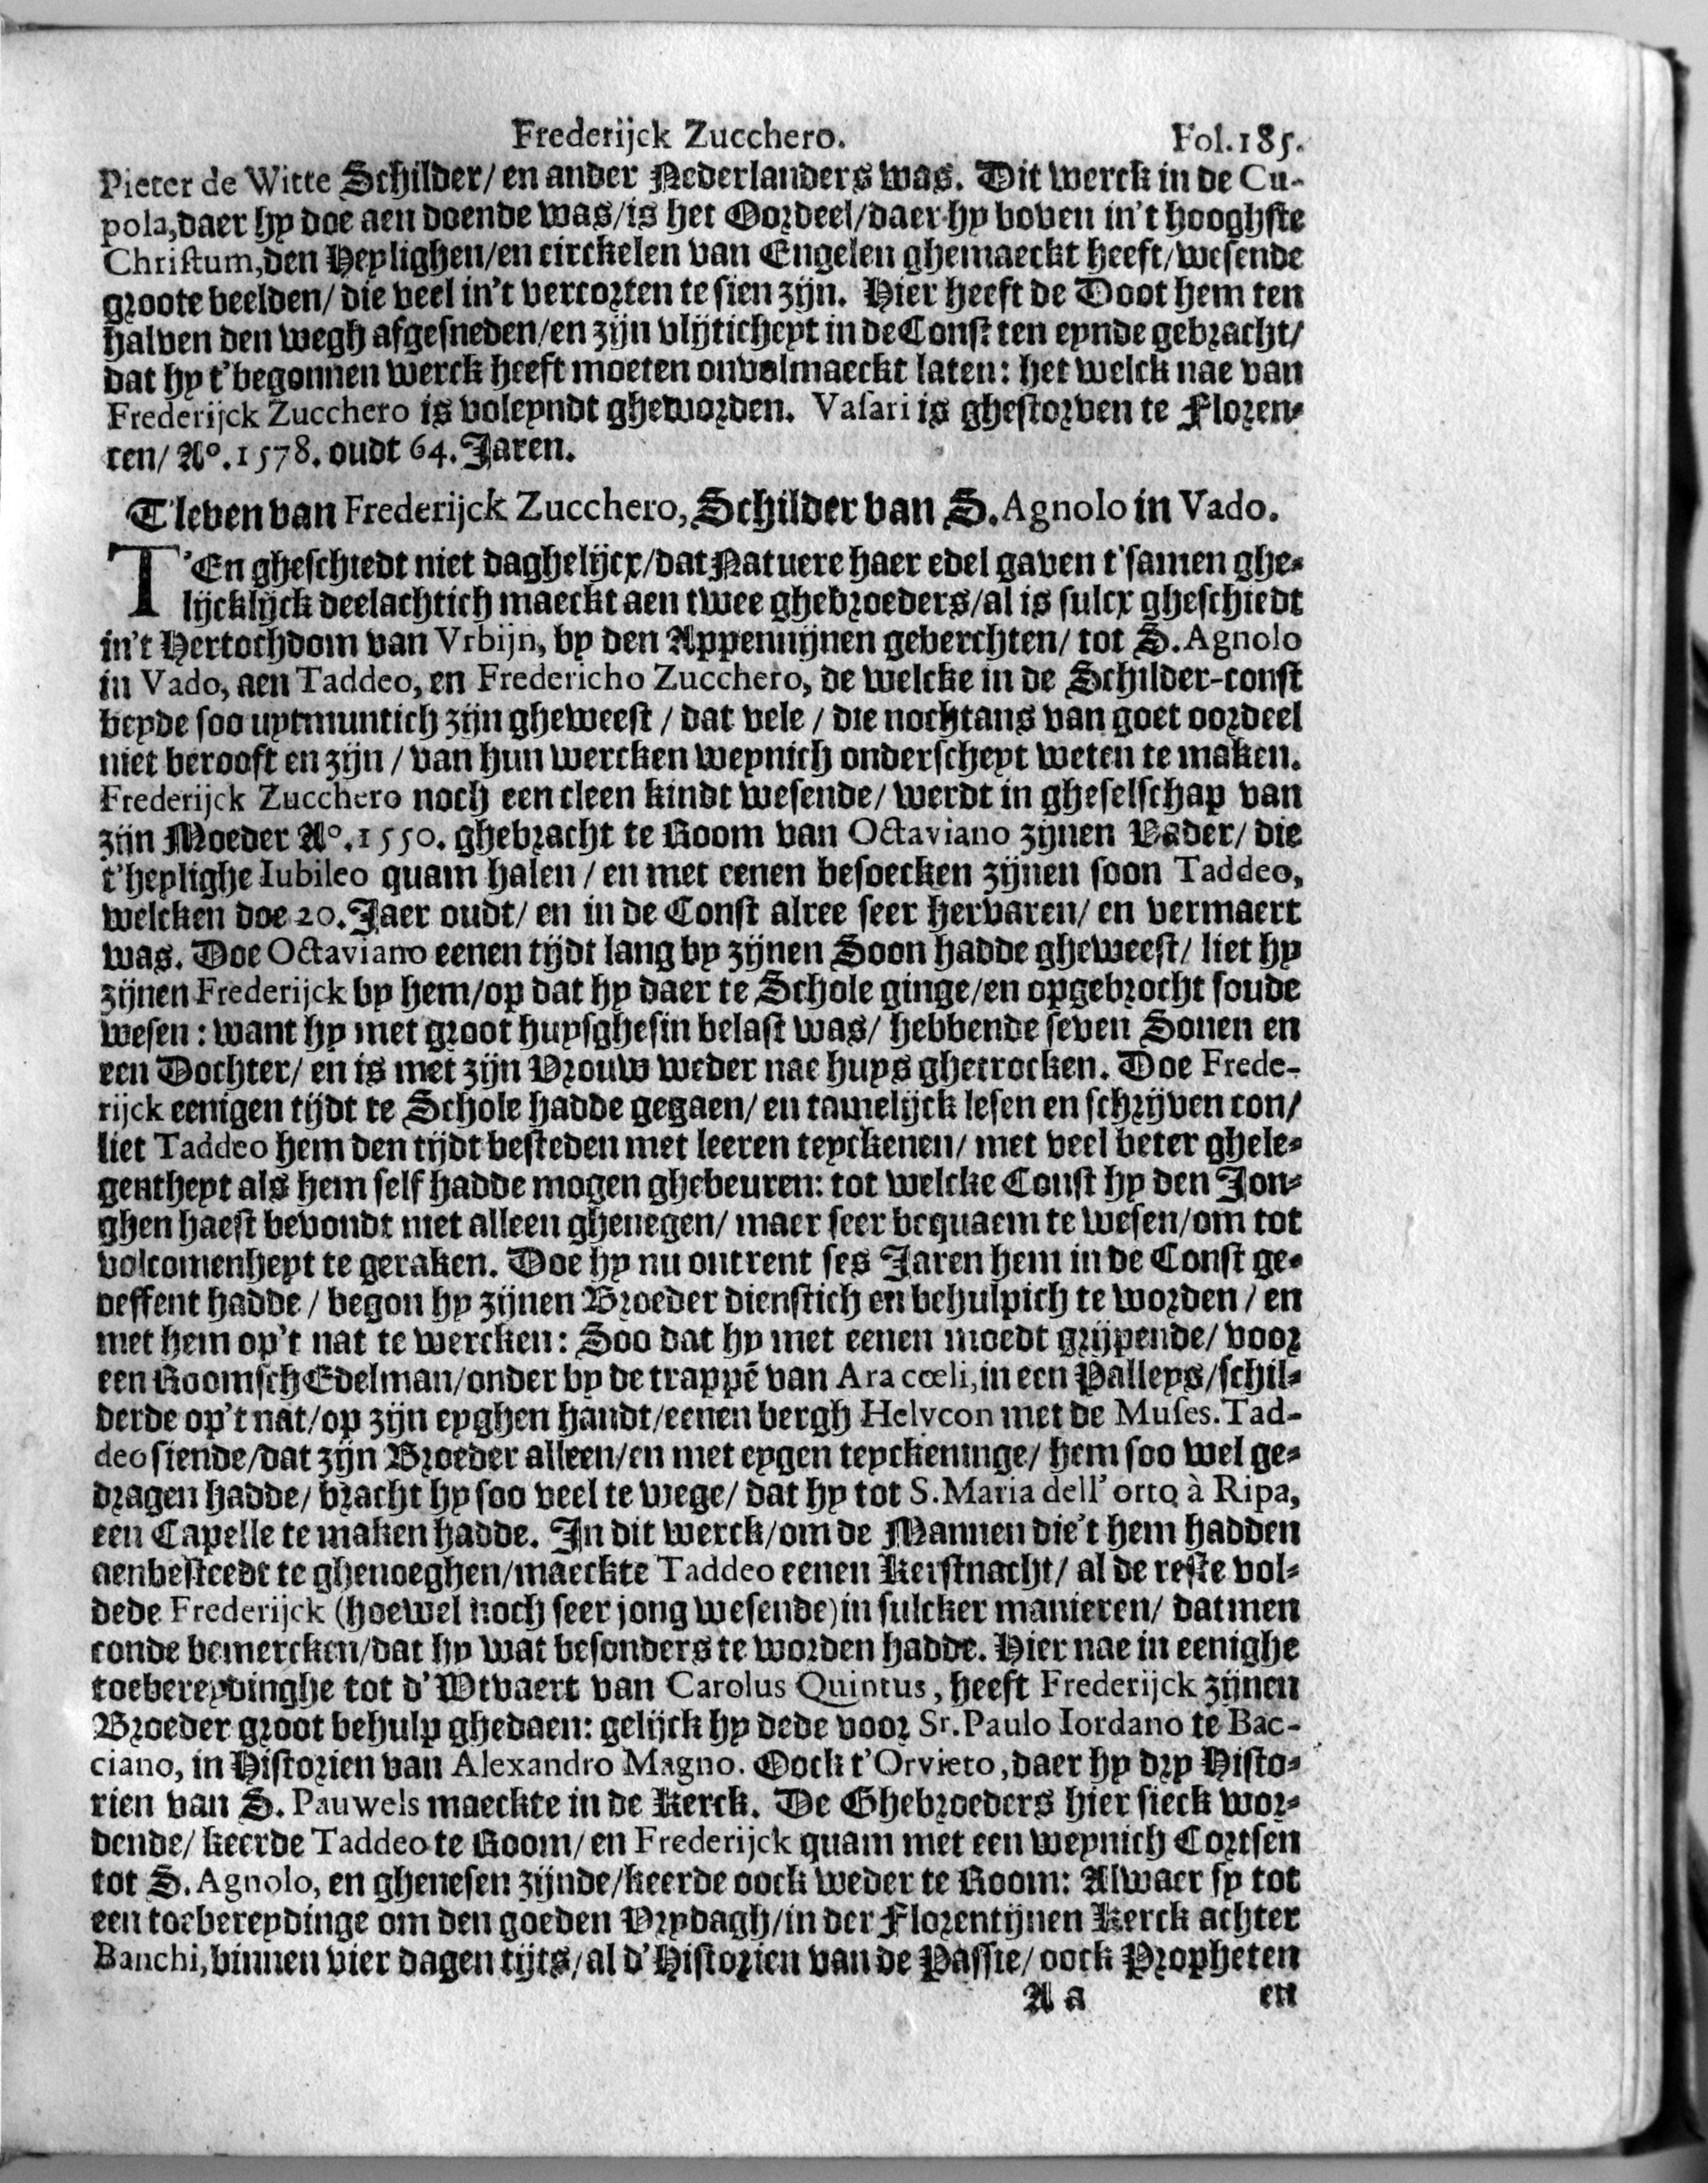 Frederijck Zucchero. Fol.185.
Pieter de Witte Schilder/ en ander Nederlanders was. Dit werck in de Cu-
pola,daer hy doe aen doende was/is het Oordeel/daer hy boven in't hooghste
Christum,den Heylighen/en circkelen van Engelen ghemaeckt heeft/wesende
groote beelden/ die veel in't vercorten te sien zijn. Hier heeft de Doot hem ten
halven den wegh afgesneden/en zijn vlijticheyt in de Const ten eynde gebracht/
dat hy t'begonnen werck heeft moeten onvolmaeckt laten: het welck nae van
Frederijck Zucchero is voleyndt gheworden. Vasari is ghestorven te Floren-
cen/ Aº.1578. oudt 64. Jaren.
T'leven van Frederijck Zucchero, Schilder van S. Agnolo in Vado.
T'En gheschiedt niet daghelijcx/dat Natuere haer edel gaven t'samen ghe-
lijcklijck deelachtich maeckt aen twee ghebroeders/al is sulcx gheschiedt
in't Hertochdom van Vrbijn, by den Appennijnen geberchten/ tot S. Agnolo
in Vado, aen Taddeo, en Fredericho Zucchero, de welcke in de Schilder-const
beyde soo uytmuntich zijn gheweest / dat vele / die nochtans van goet oordeel
niet berooft en zijn / van hun wercken weynich onderscheyt weten te maken.
Frederijck Zucchero noch een cleen kindt wesende/ werdt in gheselschap van
zijn Moeder Aº.1550. ghebracht te Room van Octaviano zijnen Vader/ die
t'heylighe Iubileo quam halen / en met eenen besoecken zijnen soon Taddeo,
welcken doe 20. Jaer oudt/ en in de Const alree seer hervaren/ en vermaert
was. Doe Octaviano eenen tijdt lang by zijnen Soon hadde gheweest/ liet hy
zijnen Frederijck by hem/op dat hy daer te Schole ginge/en opgebrocht soude
wesen: want hy met groot huysghesin belast was/ hebbende seven Sonen en
een Dochter/ en is met zijn Vrouw weder nae huys ghetrocken. Doe Frede-
rijck eenigen tijdt te Schole hadde gegaen/ en tamelijck lesen en schrijven con/
liet Taddeo hem den tijdt besteden met leeren teyckenen/ met veel beter ghele-
gentheyt als hem self hadde mogen ghebeuren: tot welcke Const hy den Jon-
ghen haest bevondt niet alleen ghenegen/ maer seer bequaem te wesen/om tot
volcomenheyt te geraken. Doe hy nu ontrent ses Jaren hem in de Const ge-
oeffent hadde / begon hy zijnen Broeder dienstich en behulpich te worden / en
met hem op't nat te wercken: Soo dat hy met eenen moedt grijpende/ voor
een Roomsch Edelman/onder by de trappē van Ara cœli,in een Palleys/schil-
derde op't nat/op zijn eyghen handt/eenen bergh Helycon met de Muses. Tad-
deo siende/dat zijn Broeder alleen/en met eygen teyckeninge/ hem soo wel ge-
dragen hadde/ bracht hy soo veel te wege/ dat hy tot S. Maria dell' orto à Ripa,
een Capelle te maken hadde. In dit werck/om de Mannen die't hem hadden
aenbesteedt te ghenoeghen/maeckte Taddeo eenen Kerstnacht/ al de reste vol-
dede Frederijck (hoewel noch seer jong wesende)in sulcker manieren/ datmen
conde bemercken/dat hy wat besonders te worden hadde. Hier nae in eenighe
toebereydinghe tot d'Wtvaert van Carolus Quintus, heeft Frederijck zijnen
Broeder groot behulp ghedaen: gelijck hy dede voor Sr. Paulo Iordano te Bac-
ciano, in Historien van Alexandro Magno. Oock t'Orvieto,daer hy dry Histo-
rien van S. Pauwels maeckte in de Kerck. De Ghebroeders hier sieck wor-
dende/ keerde Taddeo te Room/ en Frederijck quam met een weynich Cortsen
tot S. Agnolo, en ghenesen zijnde/keerde oock weder te Room: Alwaer sy tot
een toebereydinge om den goeden Vrydagh/in der Florentijnen Kerck achter
Banchi,binnen vier dagen tijts/al d'Historien van de Passie/ oock Propheten
A a en